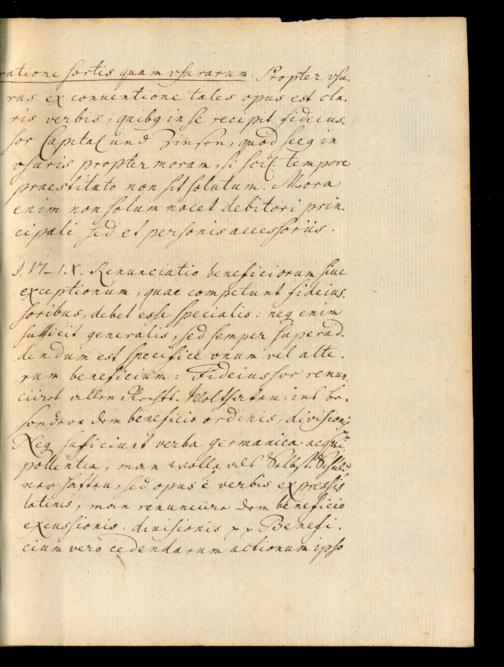 ratione sortis quam vsurarum. Propter vsu
ras ex conventione tales opus est cla
ris verbis, quibq in se recipit fideius
sor Capital und Zinsen, quod seeq in
vsuris propter moram, si scil. tempore
praestituto non sit solutum. Moora
enim non solum nocet debitori prin
cipali sed et personis accessoriis.
§. 17_1.X. Renunciatio beneficiorum sive
exceptionum, quae competunt fideius
soribus, debet esse specialis: neq enim
sufficit generalis, sed semper superad
dendum est specifice unum vel alte
rum beneficium: Fideiussor renun
ciiret allen Rechtl. Wolthaten, ins be
sondere dem beneficio ordinis, division.
Neq sufficiunt verba germanica aequi
pollentia, man wolle als Selbst Schuld
ner haften, sed opus e verbis expressis
latinis, man renunciire dem beneficio
excussionis. divisionis pp. Benefi
cium vero cedendarum actionum ipso